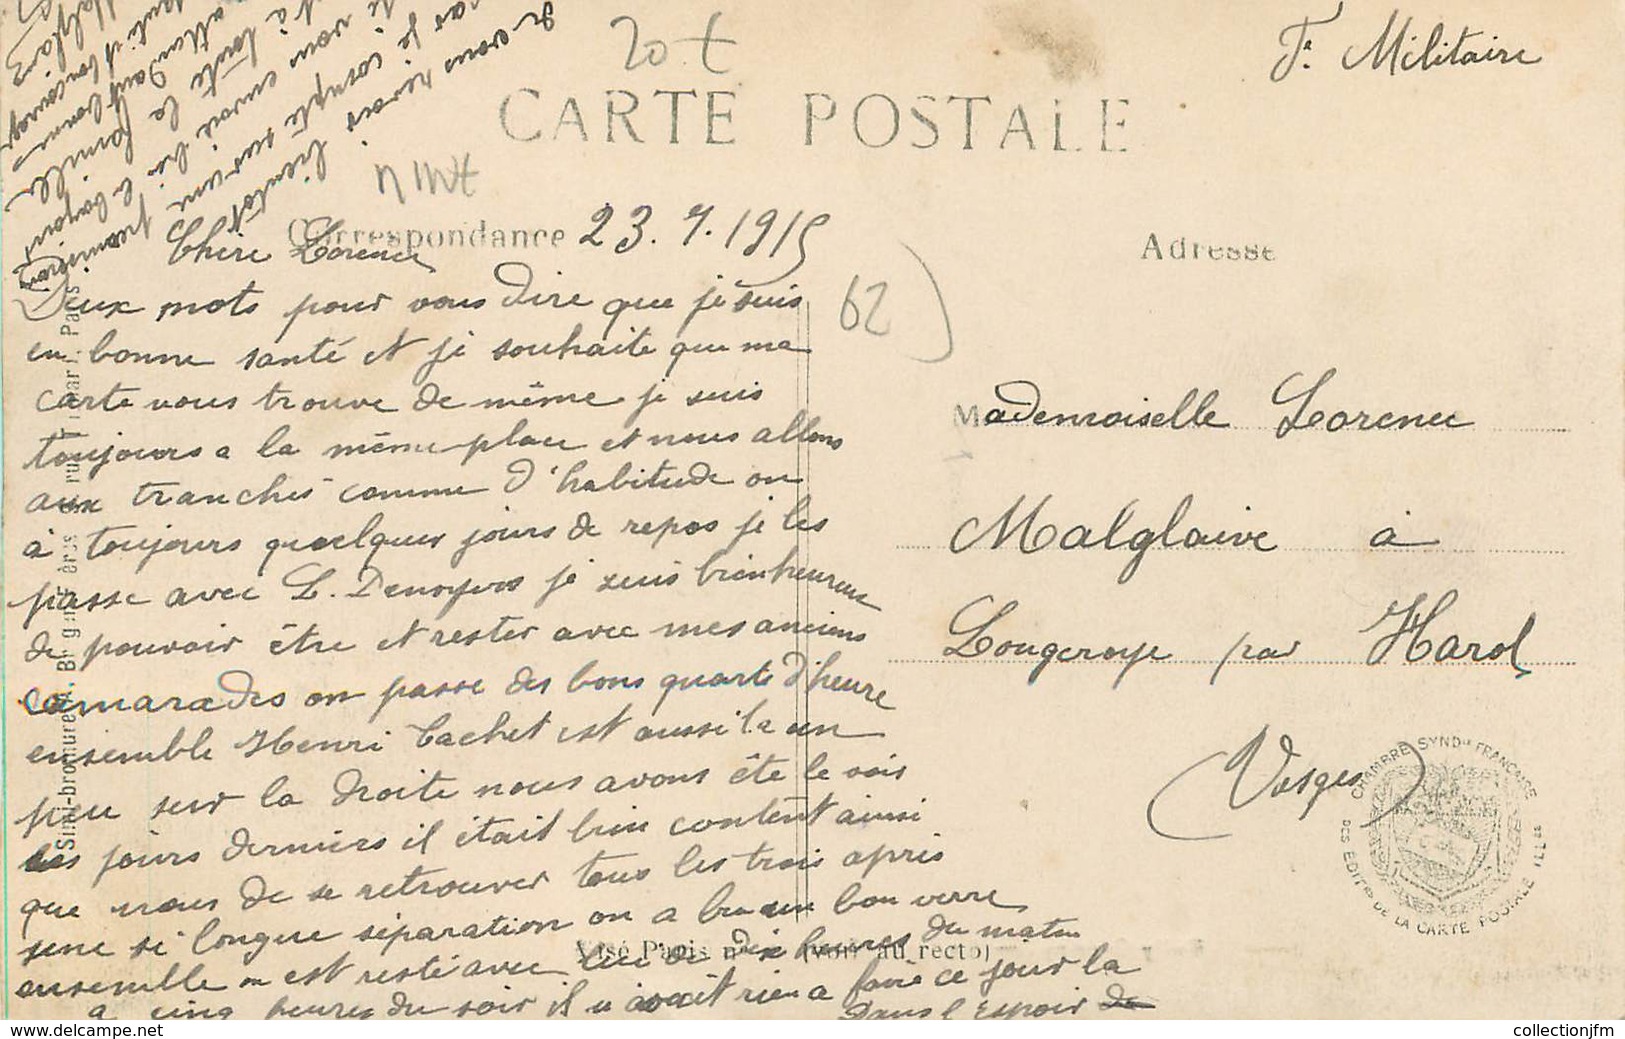 20 t
Fe. Militaire
CARTE POSTALE
Correspondance
23.7.1915
Adresse
62
Chère Lorence
Deux mots pour vous dire que je suis
en bonne santé et je souhaite que ma
carte vous trouve de même je suis
toujours a la même place et nous allons
aux tranchés comme d'habitude on
à toujours quelques jours de repos je les
passe avec L. Denoyers je suis bien heureux
de pouvoir être et rester avec mes anciens
camarades on passe des bons quarts d'heure
ensemble Henri Cachet est aussi la un
peu sur la droite nous avons ête le voir
les jours derniers il était bien content ainsi
que nous de se retrouver tous les trois après
une si longue séparation on a bu un bon verre
ensemble on est resté avec lui de dix heures du matin
a cinq heures du soir il n avait rien a faire ce jour la
dans l'espoir de
vous revoir bientôt
car je compte sur une permission
de vous envoie le bonjour
à toute la famille
attendant bonne
santé et bon courage
Mademoiselle Lorence
Malglaive à
Lougeroye par Harol
(Vosges)
Visé Paris n° (voir au recto)
CHAMBRE SYNDle FRANÇAISE
DES EDITRS DE LA CARTE POSTALE ILLTEE
collectionjfm
www.delcampe.net